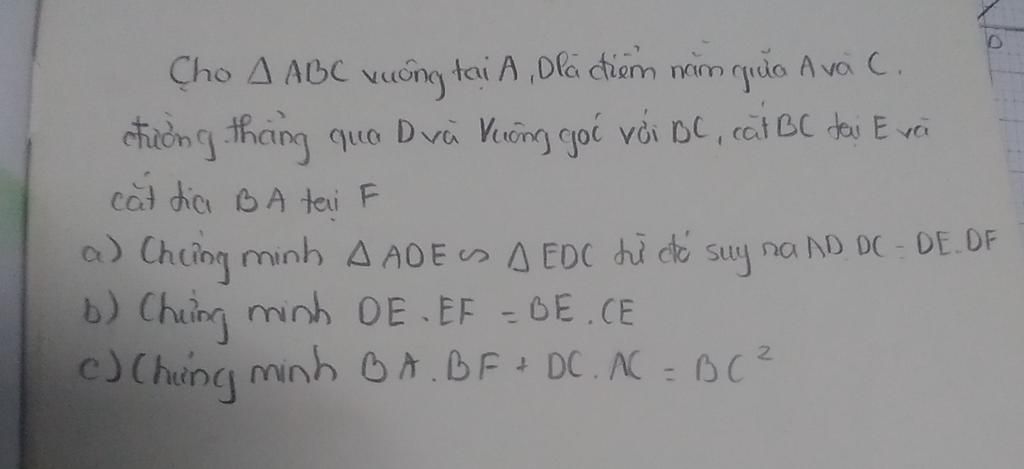 Cho Δ ABC vuông tại A, D là điểm nằm giữa A và C.
đường thẳng qua D và vuông góc với BC, cắt BC tại E và
cắt tia BA tại F
a) Chứng minh Δ ADE ∽ Δ EDC từ đó suy ra AD.DC = DE.DF
b) Chứng minh DE.EF = BE.CE
c) Chứng minh BA.BF + DC.AC = BC²